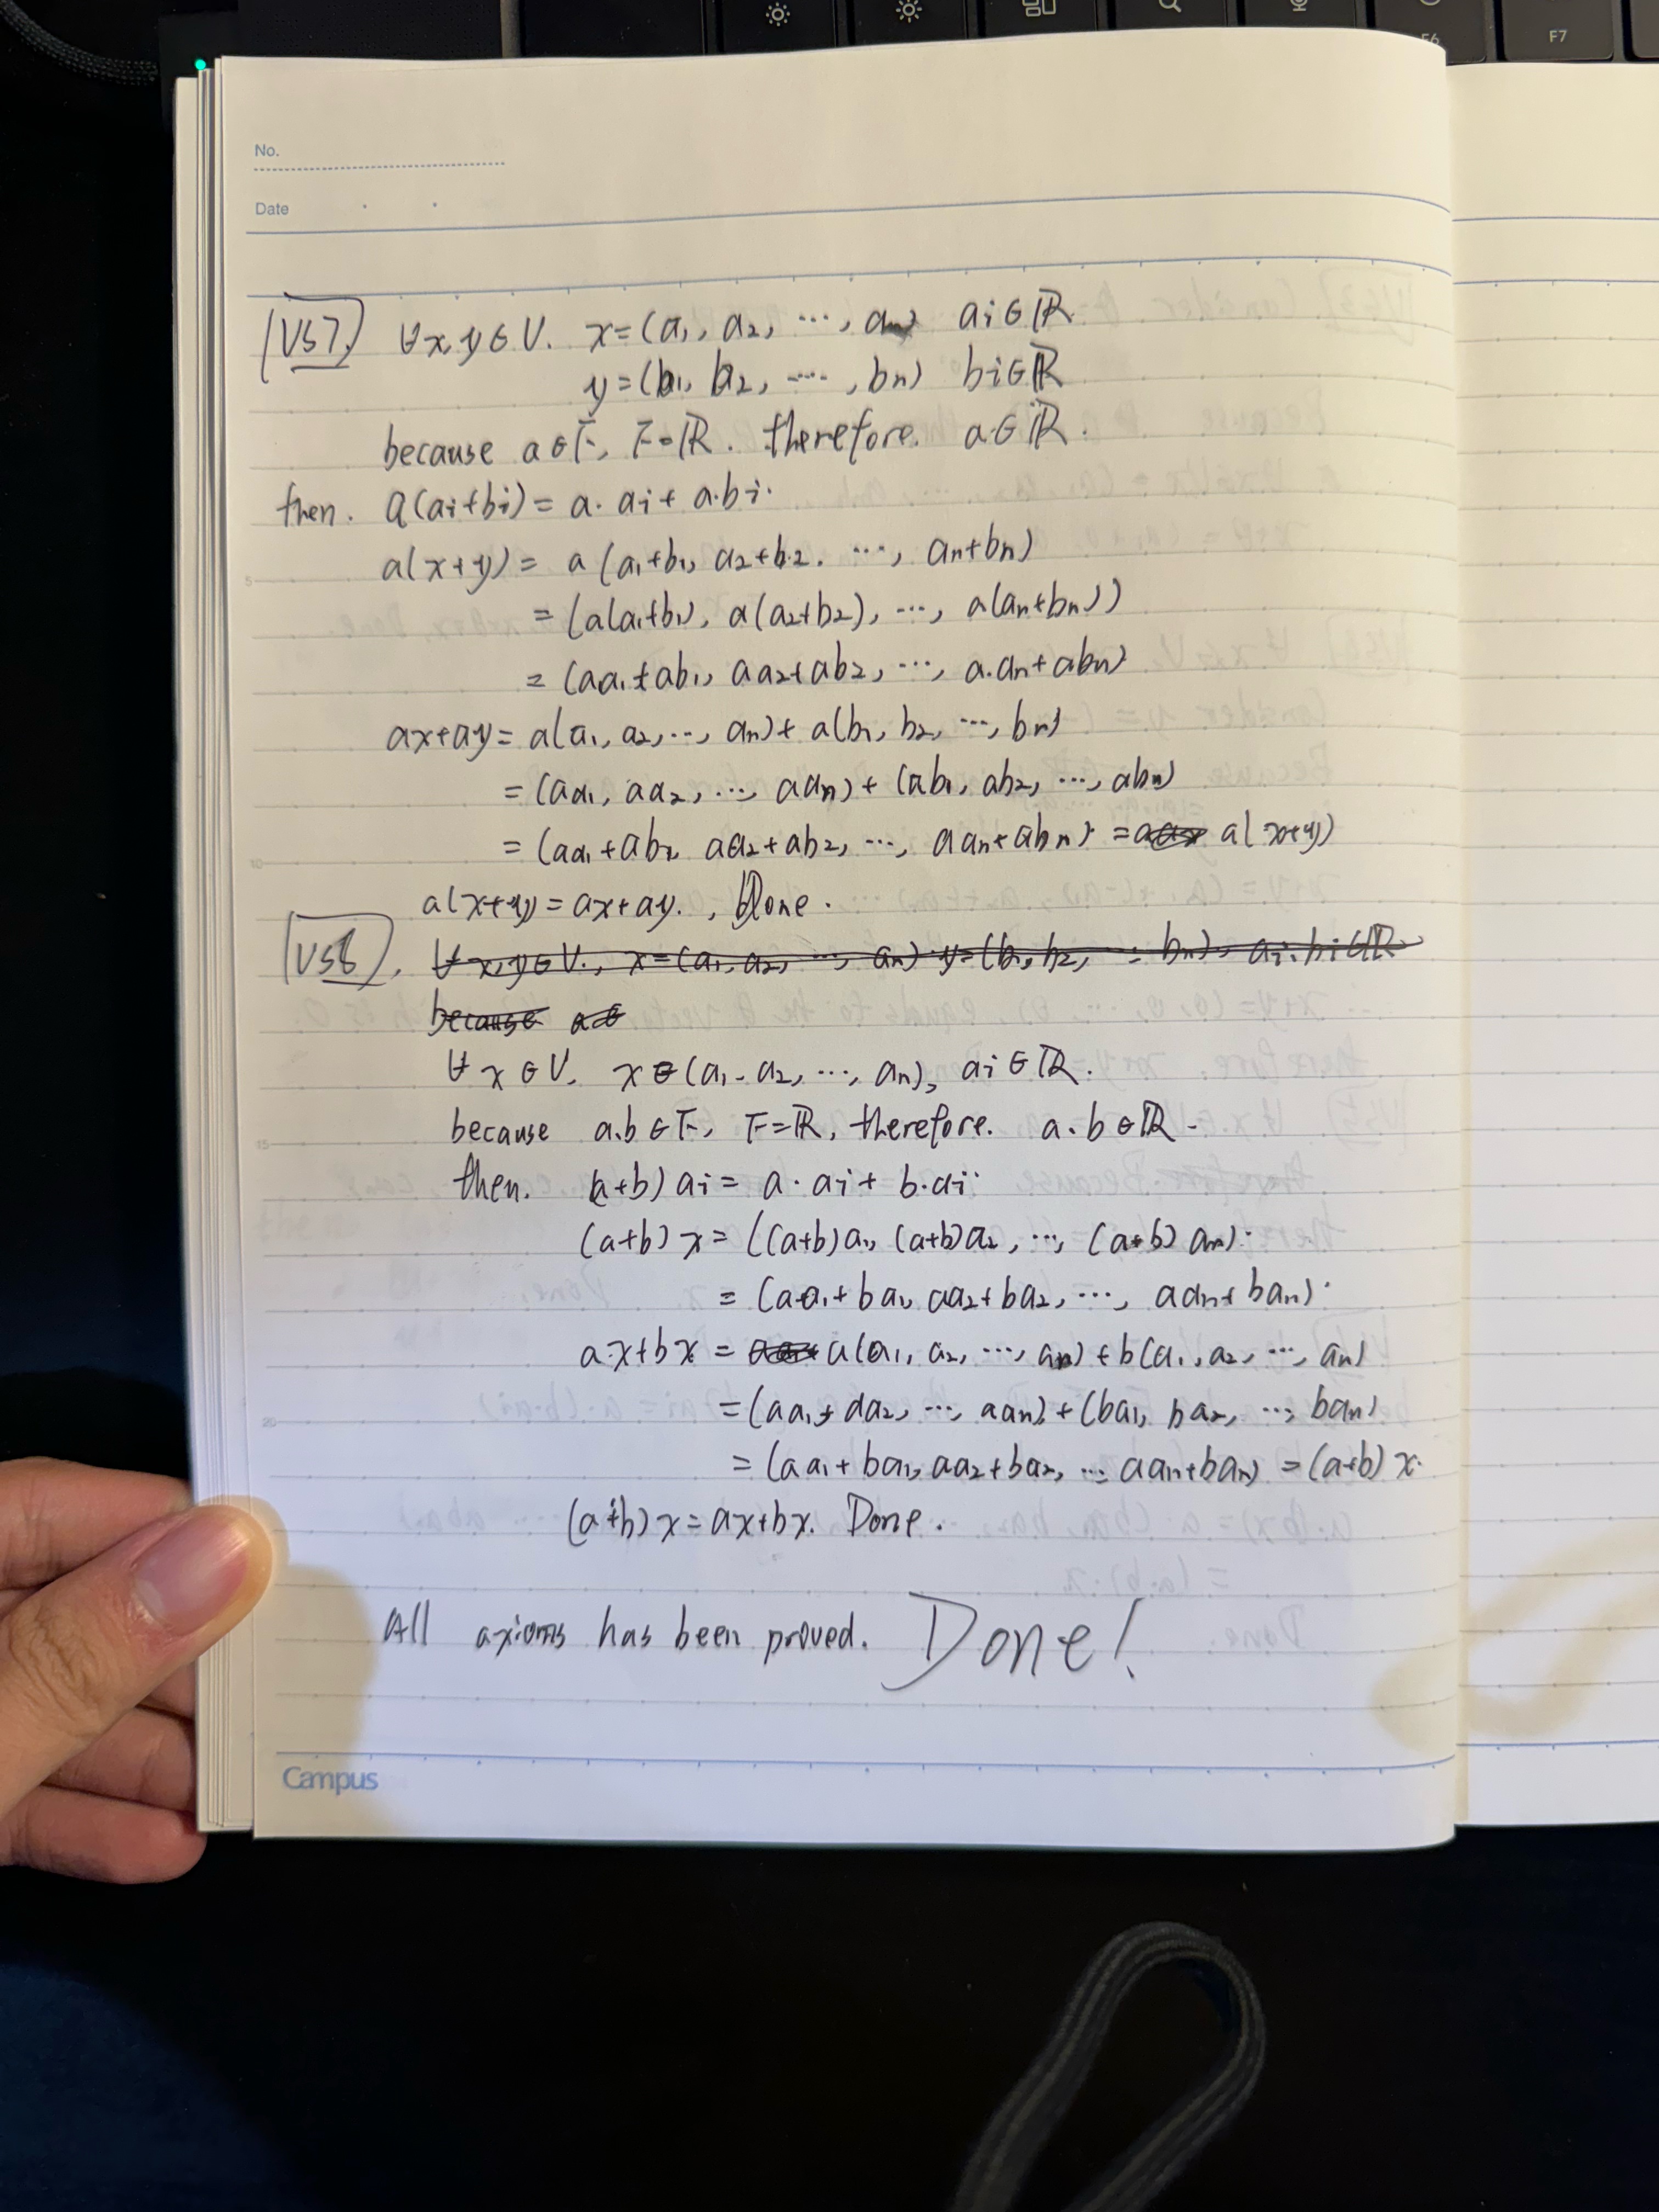 F6
F7
No.
Date
VS7 ∀x, y∈V. x=(a1, a2, ..., an) ai∈ℝ
y=(b1, b2, ..., bn) bi∈ℝ
because a∈F, F=ℝ. therefore. a∈ℝ.
then. a(ai+bi)= a·ai+a·bi.
5
a(x+y)= a(a1+b1, a2+b2. ..., an+bn)
=(a(a1+b1), a(a2+b2), ..., a(an+bn))
=(aa1+ab1, aa2+ab2, ..., a·an+abn)
ax+ay= a(a1, a2, ..., an)+a(b1, b2, ..., bn)
=(aa1, aa2, ..., aan)+(ab1, ab2, ..., abn)
10
=(aa1+ab1, aa2+ab2, ..., aan+abn) = a(x+y)
a(x+y)=ax+ay., Done.
VS8. ∀x,y∈V., x=(a1, a2, ..., an) y=(b1, b2, ..., bn), ai. bi∈ℝ
because a∈
∀x∈V. x∈(a1, a2, ..., an), ai∈ℝ.
15
because a.b∈F, F=ℝ, therefore. a.b∈ℝ.
then. (a+b)ai= a·ai+b·ai.
(a+b)x=((a+b)a1, (a+b)a2, ..., (a+b)an).
=(a·a1+ba1, aa2+ba2, ..., aan+ban).
a·x+bx= a(a1, a2, ..., an)+b(a1, a2, ..., an)
20
=(aa1+aa2, ..., aan)+(ba1, ba2, ..., ban)
=(aa1+ba1, aa2+ba2, ... aan+ban) =(a+b)x.
(a+b)x=ax+bx. Done.
All axioms has been proved. Done!
Campus